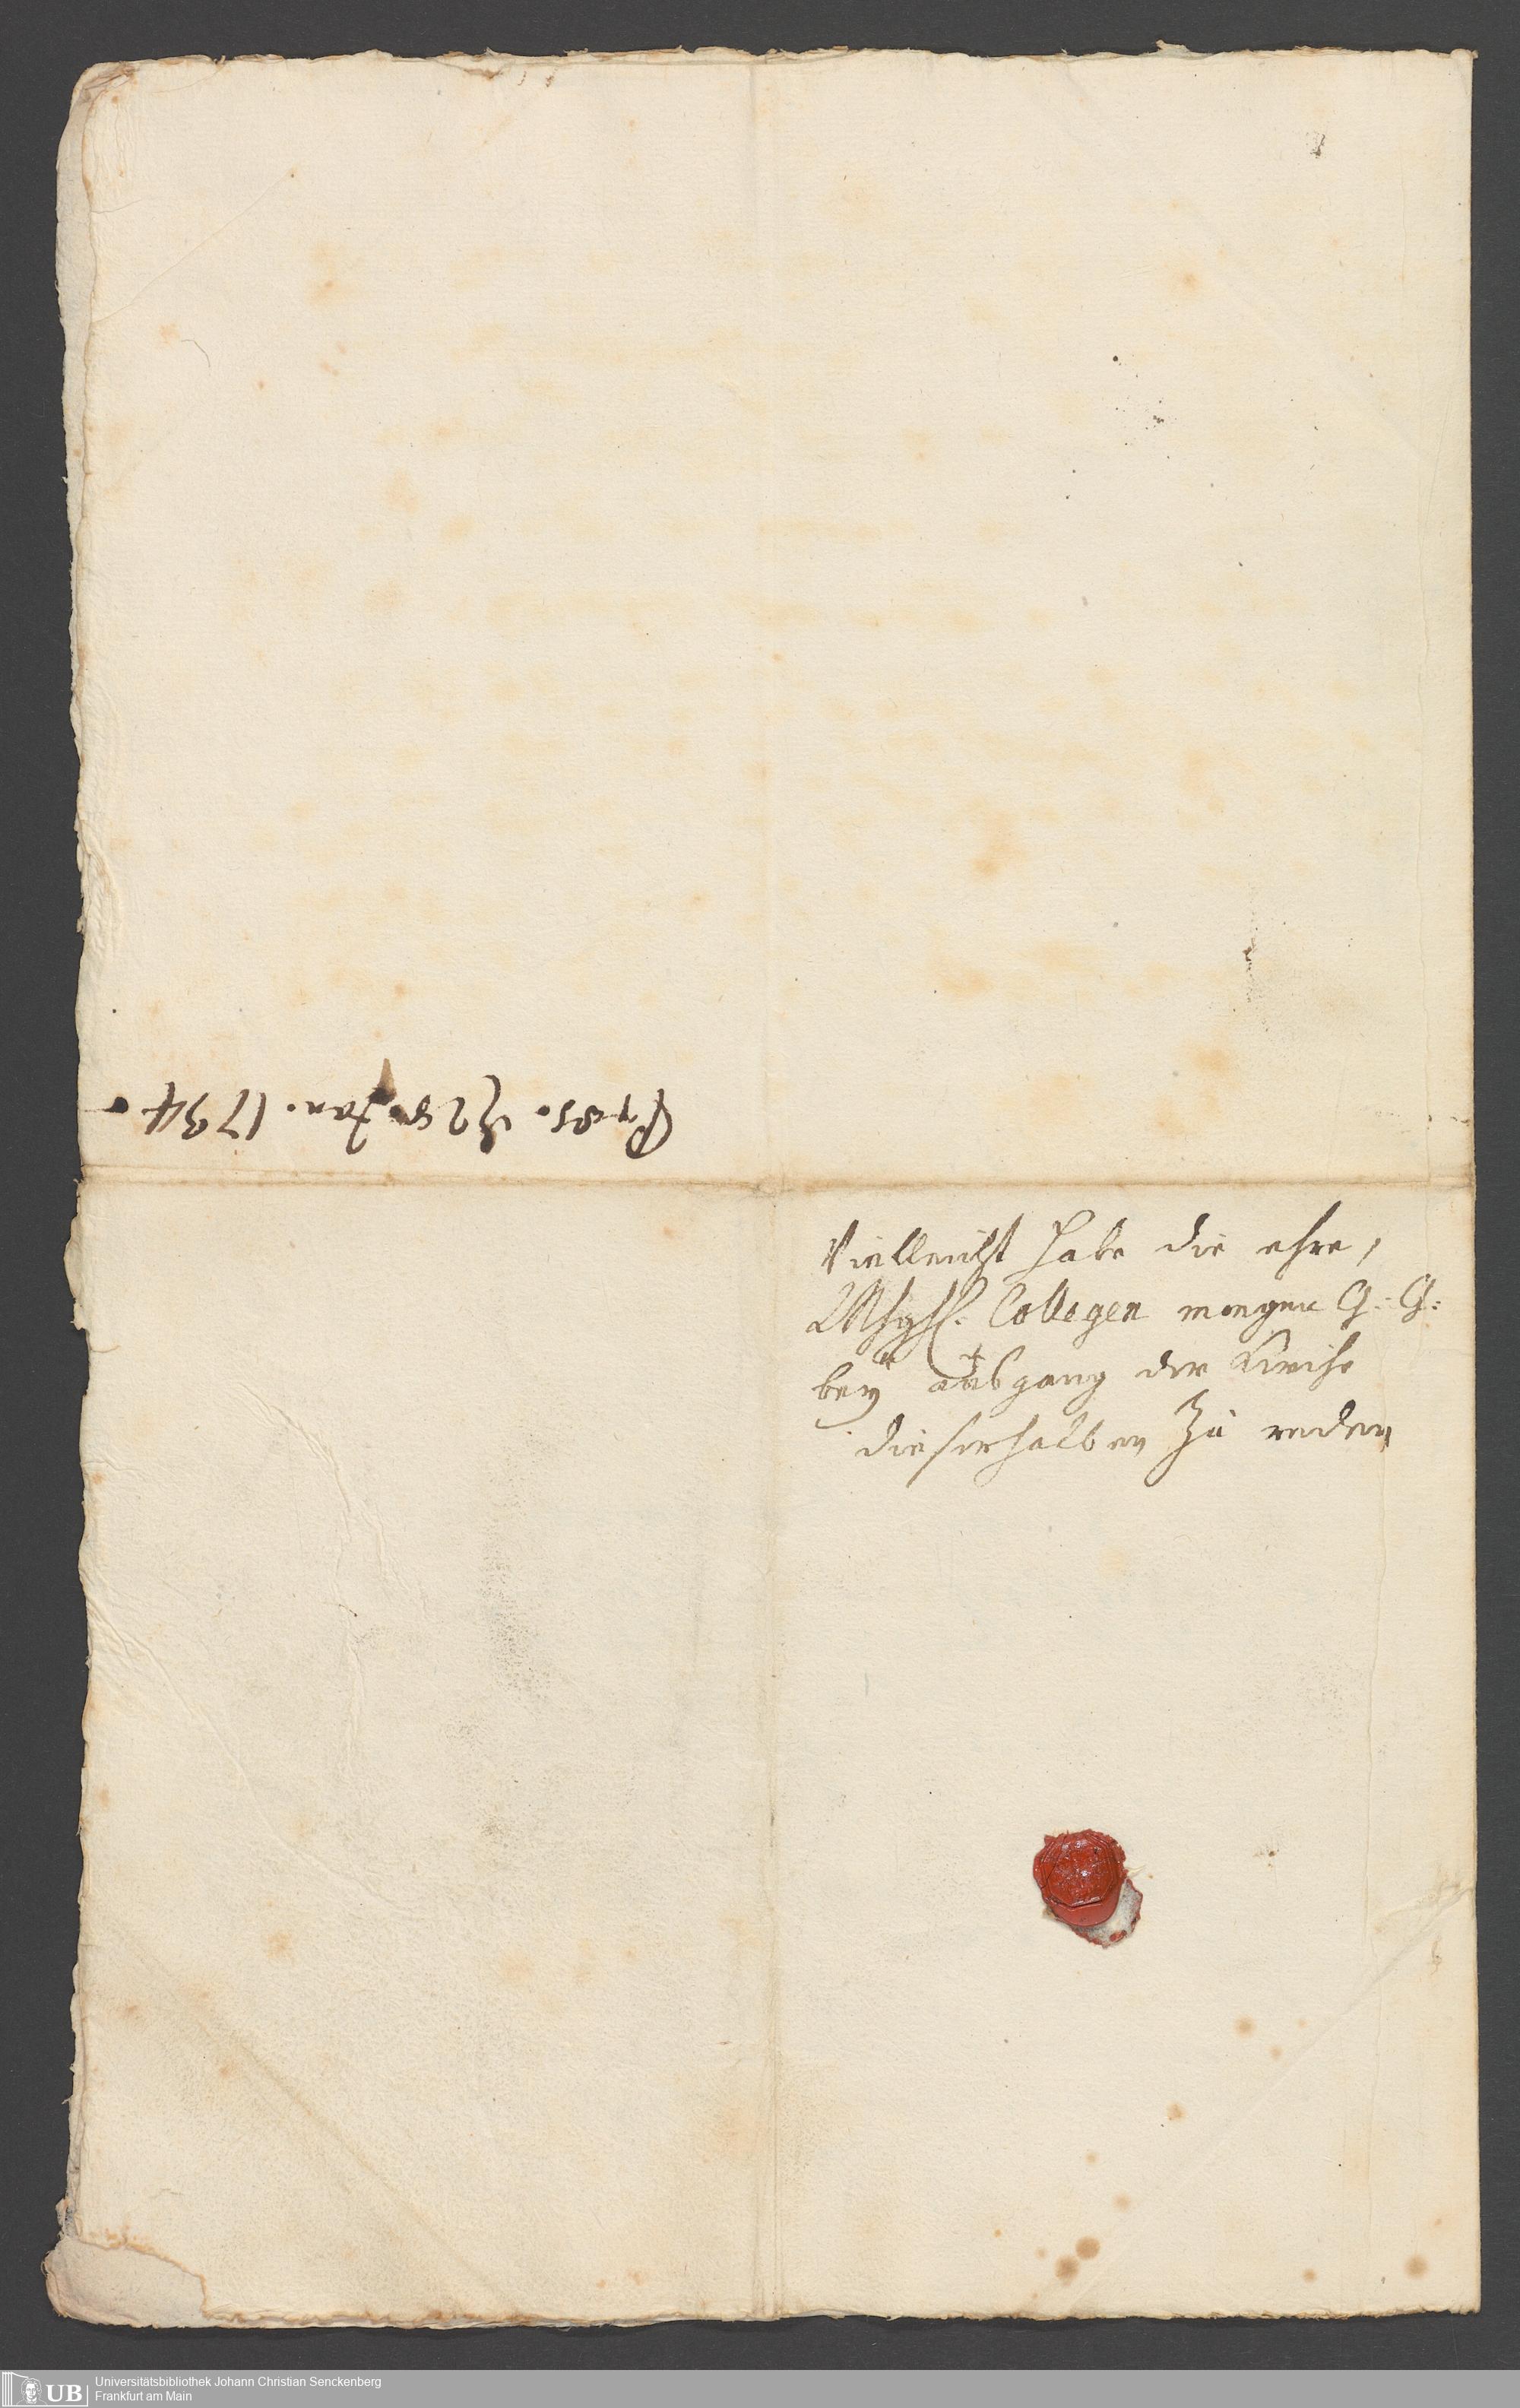 Præs. d. 28. Jan. 1734.
Vielleicht habe die ehre,
Collegen morgen G: G:
bey außgang der Kirche
dieserhalben zu reden
Universitätsbibliothek Johann Christian Senckenberg
Frankfurt am Main
UB